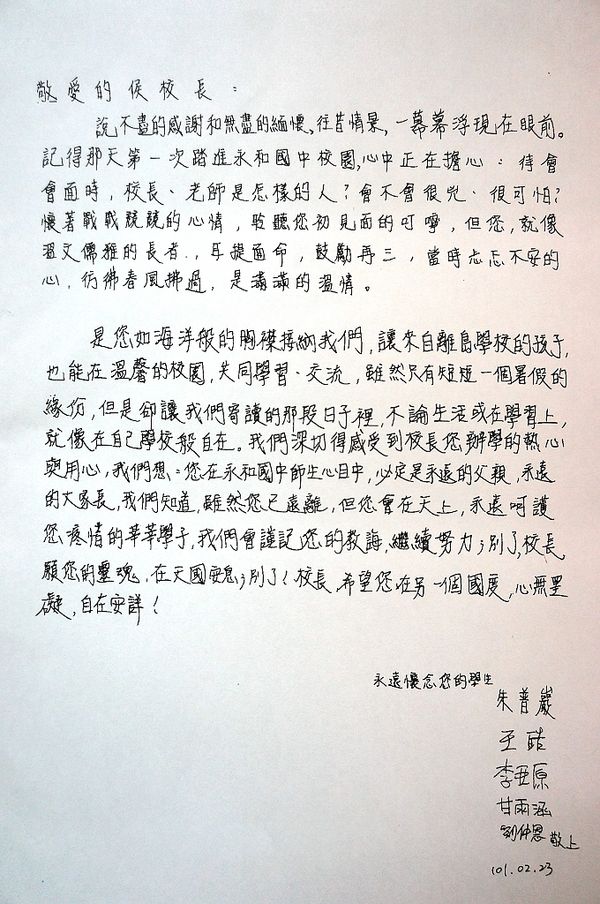 敬愛的侯校長：
說不盡的感謝和無盡的緬懷，往昔情景，一幕幕浮現在眼前。
記得那天第一次踏進永和國中校園，心中正在擔心：待會
會面時，校長、老師是怎樣的人？會不會很兇、很可怕？
懷著戰戰兢兢的心情，聆聽您初見面的叮嚀，但您，就像
溫文儒雅的長者，耳提面命，鼓勵再三，當時忐忑不安的
心，彷彿春風拂過，是滿滿的溫情。
是您如海洋般的胸襟接納我們，讓來自離島學校的孩子，
也能在溫馨的校園，共同學習、交流，雖然只有短短一個暑假的
緣份，但是卻讓我們寄讀的那段日子裡，不論生活或在學習上，
就像在自己學校般自在。我們深切得感受到校長您辦學的熱心
與用心，我們想：您在永和國中師生心目中，必定是永遠的父親，永遠
的大家長，我們知道，雖然您已遠離，但您會在天上，永遠呵護
您疼惜的莘莘學子，我們會謹記您的教誨，繼續努力；別了，校長，
願您的靈魂，在天國安息；別了！校長，希望您在另一個國度，心無罣
礙，自在安詳！
永遠懷念您的學生
朱普巖
王
李亞原
甘雨涵
劉仲恩 敬上
101.02.23